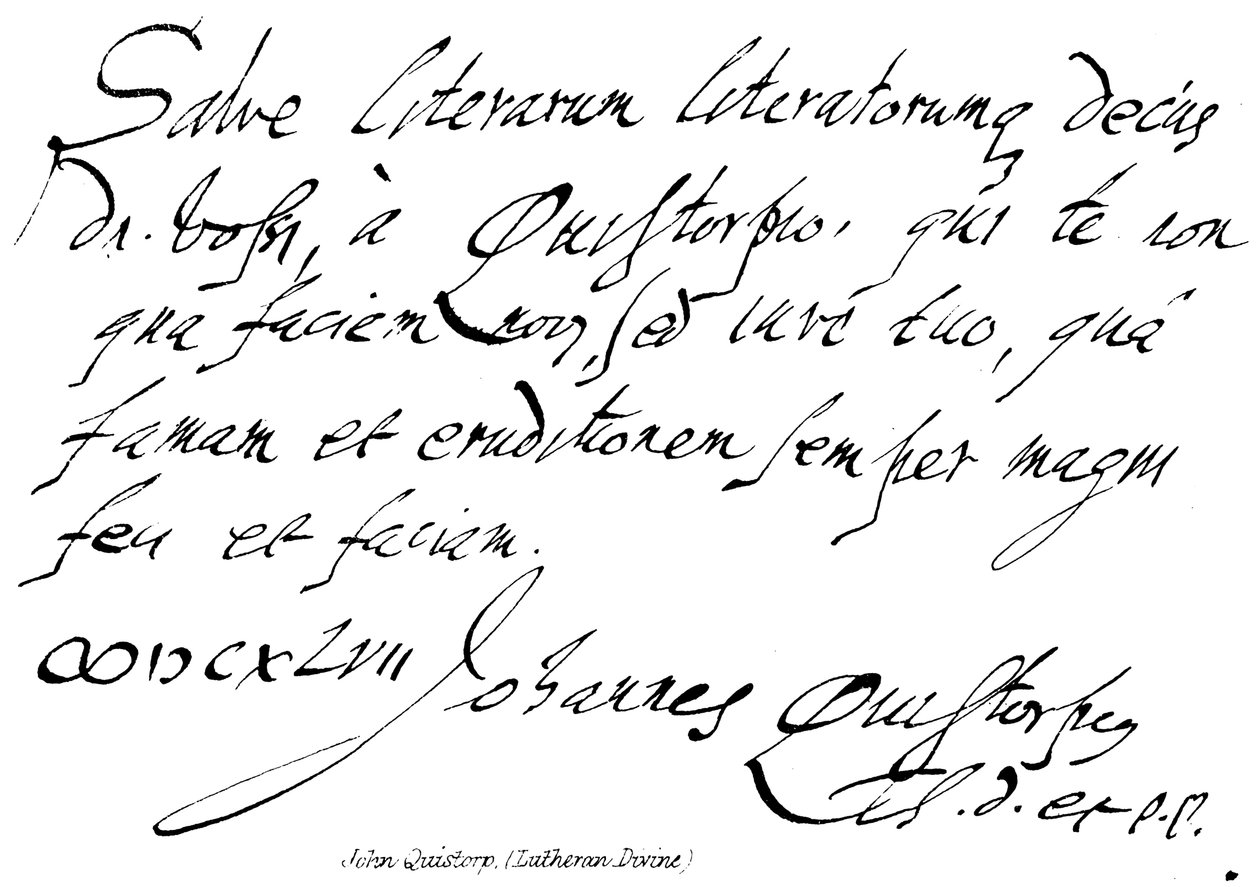 Salve literarum literatorumq decus
Dn. Vossi, à Quistorpio, qui te non
qua faciem novj, sed iure tuo, quà
famam et eruditionem semper magni
feci et faciam.
∞IƆCXLVII Johannes Quistorpius
Th. D. et P. P.
John Quistorp, (Lutheran Divine)